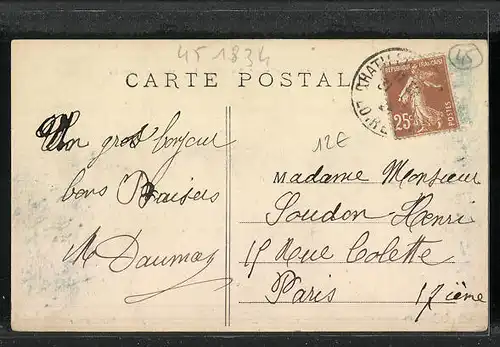 45 1834
45
CARTE POSTALE
CHATILL
LOIRE
REPUBLIQUE FRANÇAISE
25c
POSTES
12E
Un gros bonjour
bons Baisers
M Daumas
Madame Monsieur
Soudon Henri
15 Rue Colette
Paris 17ième